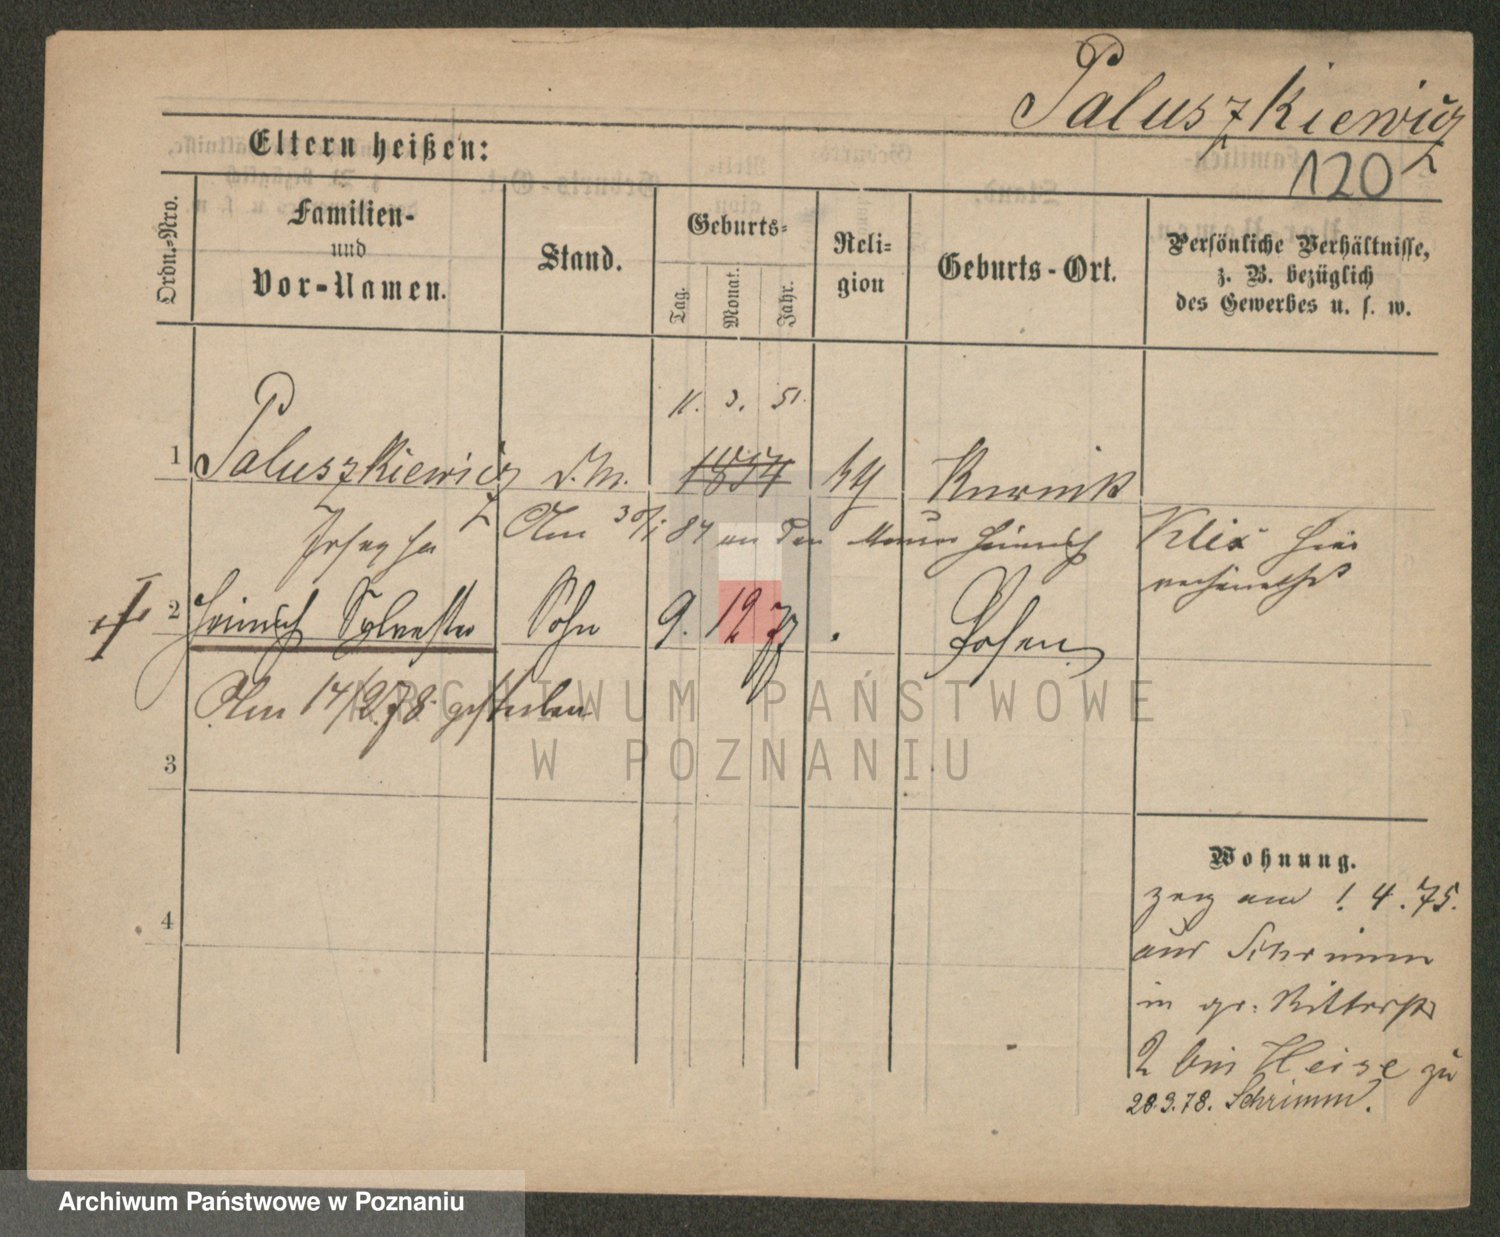 Paluszkiewicz
120
Eltern heißen:
Ordn.-Nro.
Familien-
und
Vor-Namen.
Stand.
Geburts-
Tag.
Monat.
Jahr.
Reli-
gion
Geburts-Ort.
Persönliche Verhältnisse,
z. B. bezüglich
des Gewerbes u. s. w.
11. 3. 51.
1 Paluszkiewicz d. M. 1854 Kurnik
Josepha
Am 30/1 84 an den Maurer Heinrich Klix hier
verheirathet
2 Heinrich Sylvester Sohn 9. 12 77 . Posen
Am 14/2 78 gestorben
3
4
Wohnung.
zog am 1. 4. 75.
aus Schrimm
in gr. Ritterstr
2 bei Heise zu
28.3.78. Schrimm.
ARCHIWUM PAŃSTWOWE
W POZNANIU
Archiwum Państwowe w Poznaniu